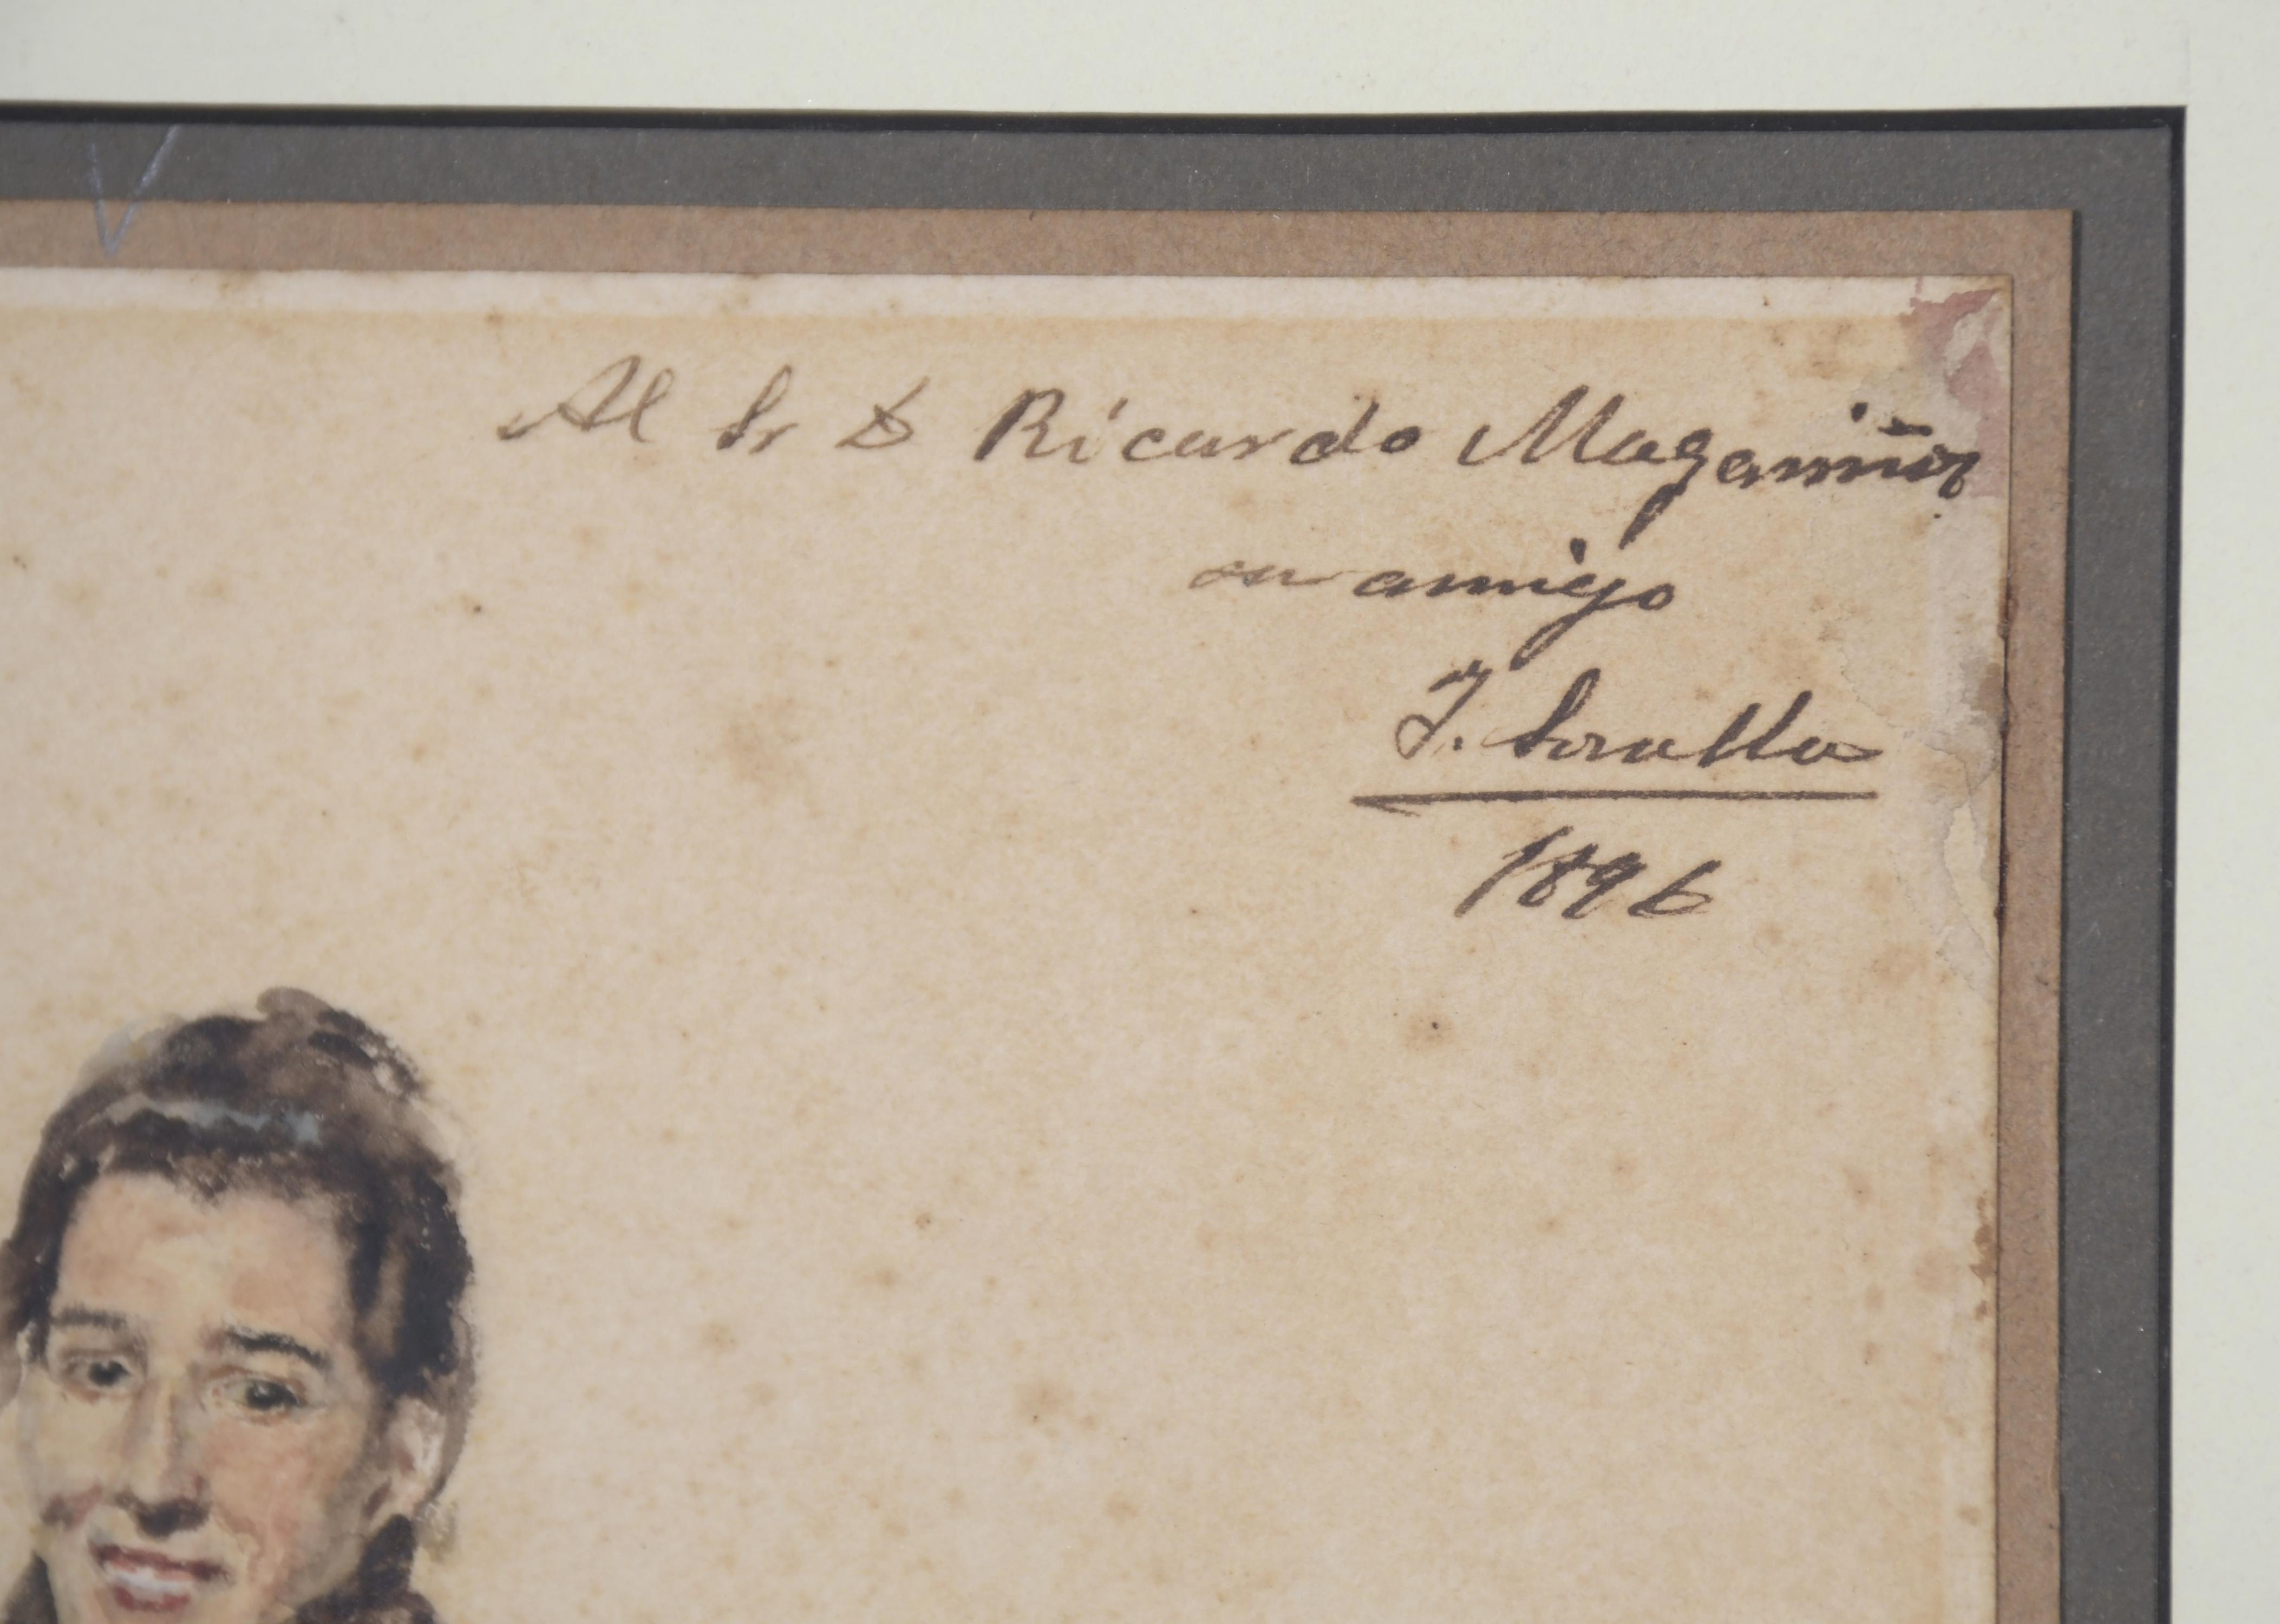 Al Sr D Ricardo Magariños
su amigo
J. Sorolla
1896